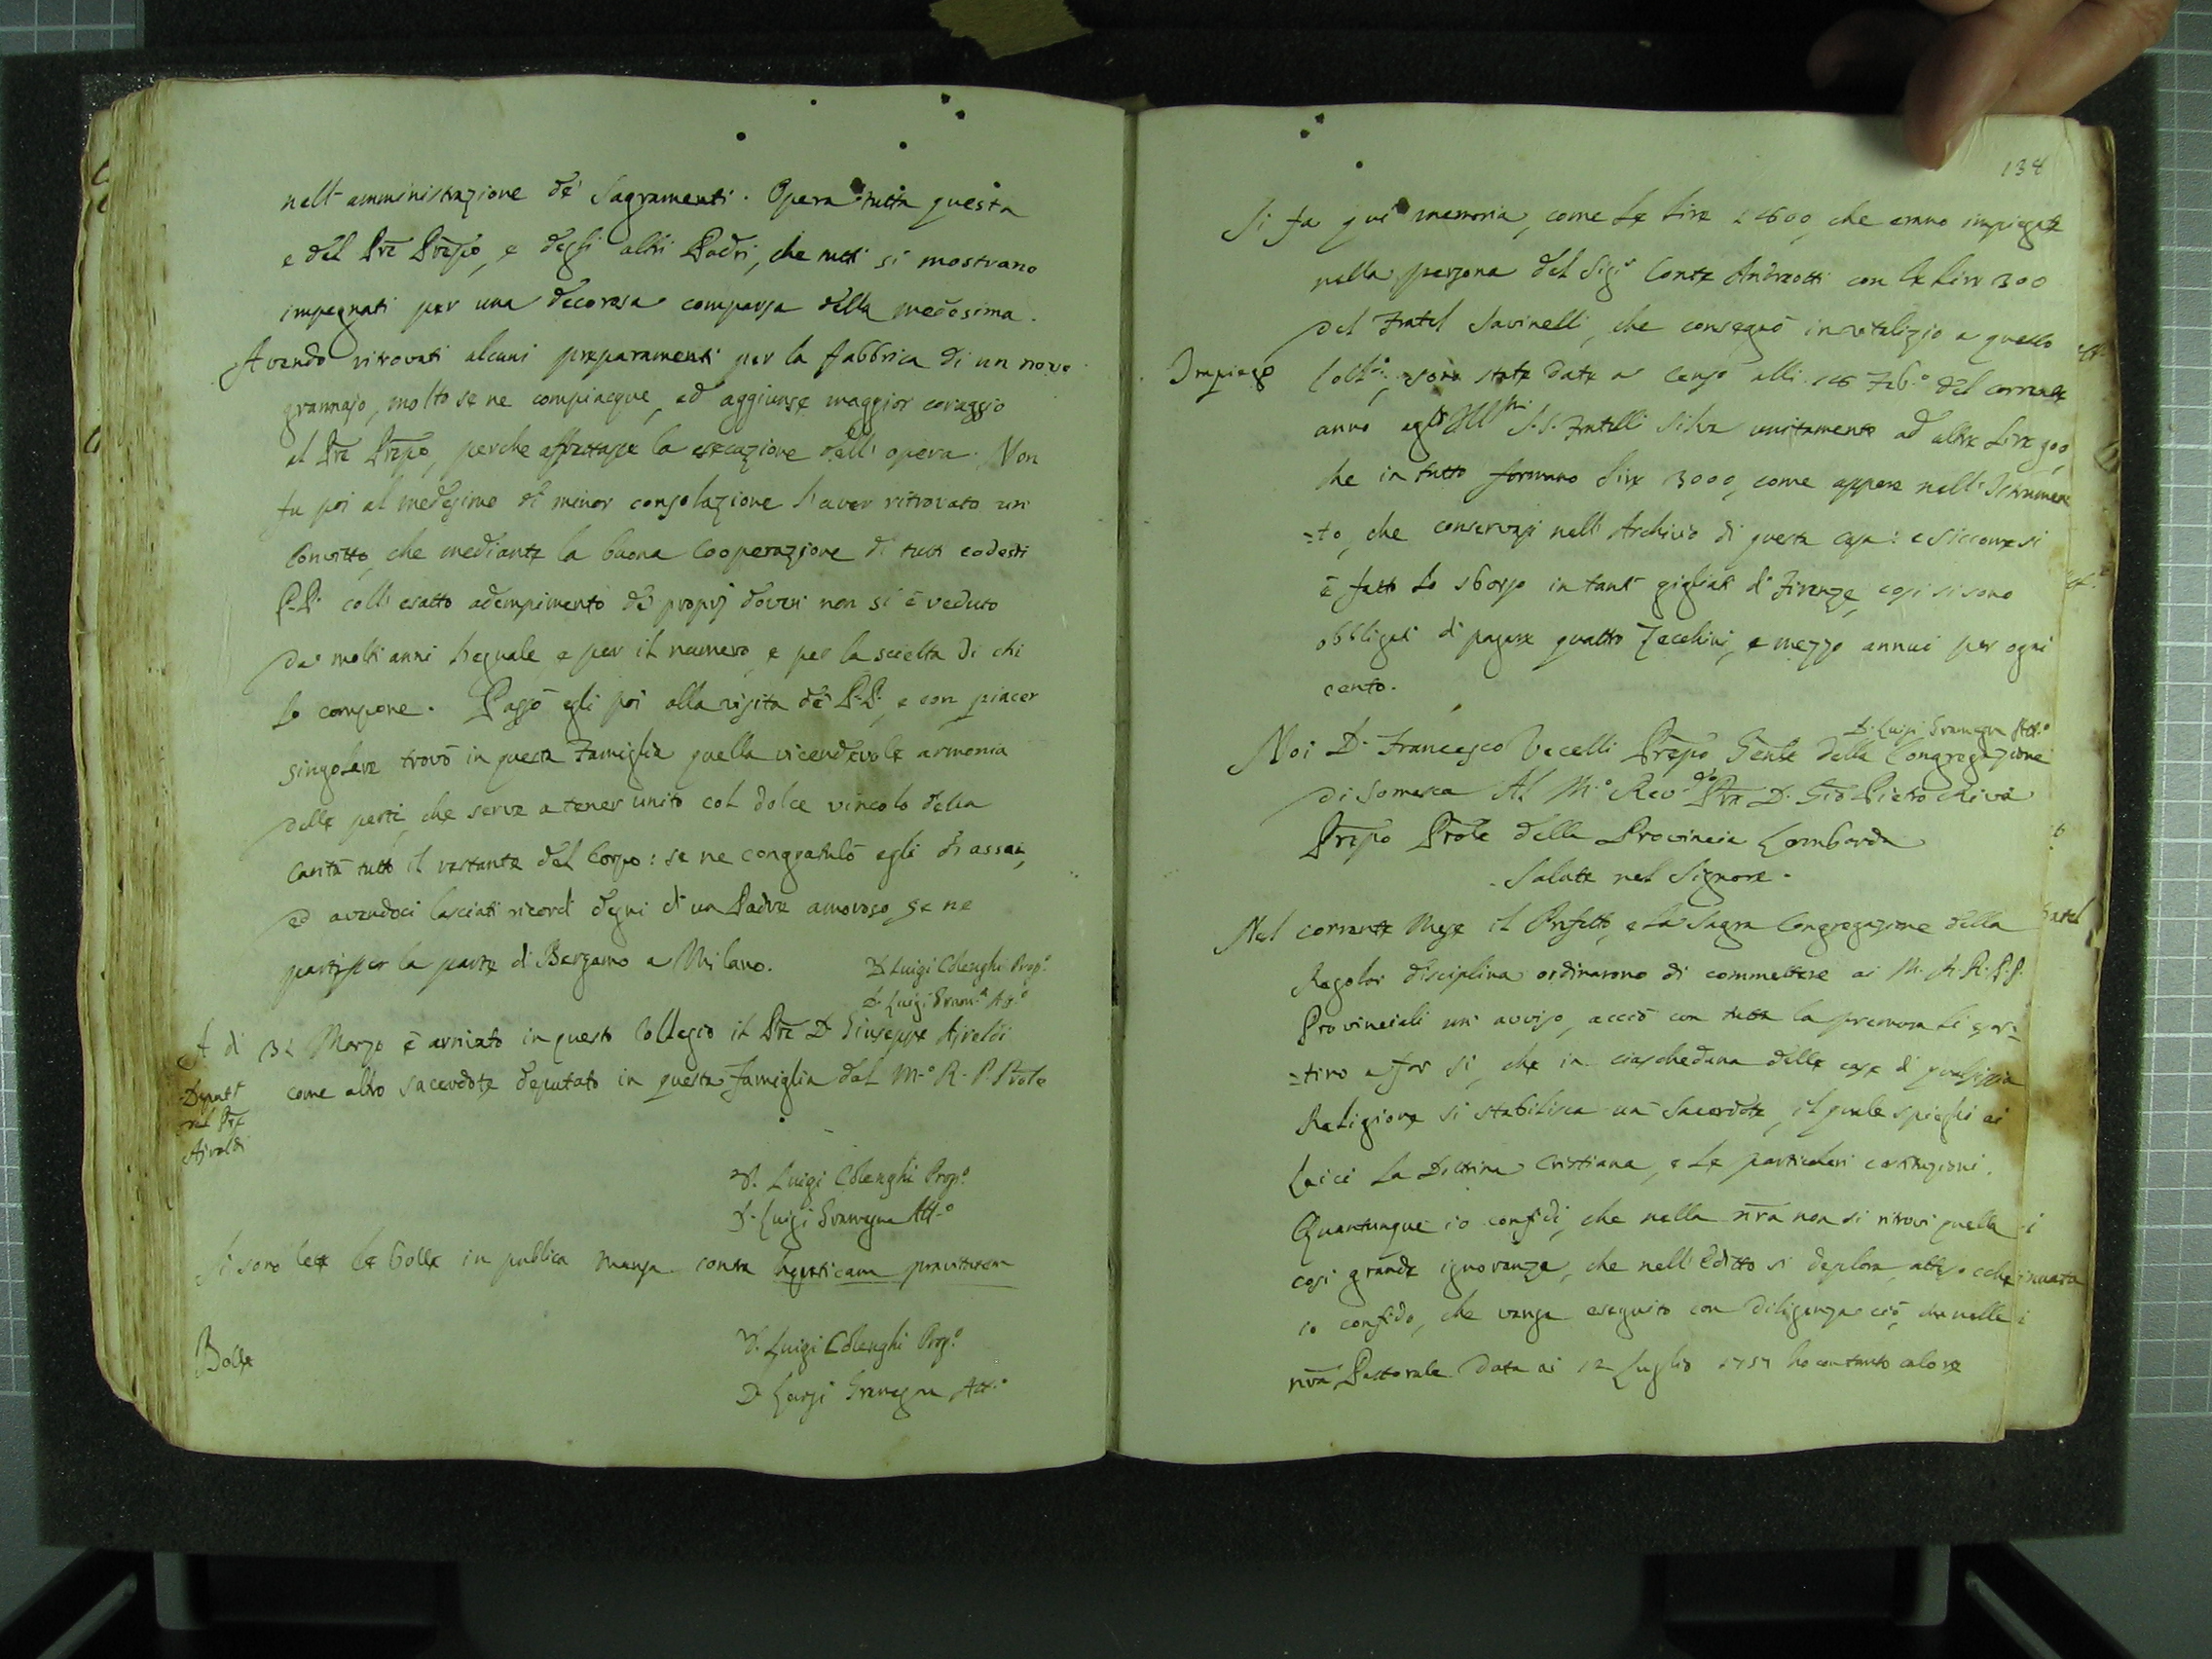 nell'amministrazione de' Sagramenti. Opera tutta questa
e del Pre Prepo, e degli altri Padri, che tutti si mostrano
impegnati per una decorosa comparsa della medesima.
Avendo ritrovati alcuni preparamenti per la fabbrica di un novo
grannajo, molto se ne compiacque, ed aggiunse maggior coraggio
al Pre Prepo, perche affrettasse la esecuzione dell'opera. Non
fu poi al medesimo di minor consolazione l'aver ritrovato un
Convitto, che mediante la buona Cooperazione di tutti codesti
P.P. coll'esatto adempimento de' proprj doveri non si è veduto
da molti anni l'eguale, e per il numero, e per la scielta di chi
lo compone. Passò egli poi alla visita de' P.P., e con piacer
singolare trovò in questa Famiglia quella vicendevole armonia
delle parti, che serve a tener unito col dolce vincolo della
Carità tutto il restante del Corpo: se ne congratulò egli di assai,
ed avendoci lasciati ricordi degni di un Padre amoroso, se ne
partì per la parte di Bergamo a Milano.
D. Luigi Colenghi Prep.o
D. Luigi Gram.a Att.o
A di 31 Marzo è arrivato in questo Collegio il Pre D. Giuseppe Ajroldi
come altro sacerdote deputato in questa Famiglia dal M.o R. P. Prole
Deput.e
del Pre
Ajroldi
D. Luigi Colenghi Prep.o
D. Luigi Gramegna Att.o
Si sono lette le bolle in publica mensa contra hereticam pravitatem
Bolle
D. Luigi Colenghi Prep.o
D. Luigi Gramegna Att.o
134
Si fa qui memoria, come le lire che erano impiegate
nella persona del Sig.r Conte Andreotti con le lire 300
del Fratel Savinelli, che consegnò in vitalizio a questo
Impiego
Coll.o, sono state date a censo alli Feb.o del corrente
anno agl'Ill.mi S.S. Fratelli Silva unitamente ad altre lire 900,
che in tutto formano lire 3000, come appare nell'Istrumen
=to, che conservasi nell'Archivio di questa casa: e siccome si
è fatto lo sborso in tanti gigliati di Firenze, così si sono
obbligati di pagare quattro Zecchini, e mezzo annui per ogni
cento.
D. Luigi Gramegna Att.o
Noi D. Francesco Vecelli Prepo Genle della Congregazione
di Somasca Al M.o Rev.do Pre D. Gio Pietro Riva
Prepo Prole della Provincia Lombarda
Salute nel Signore.
Nel corrente Mese il Prefetto, e la Sagra Congregazione della
Regolar disciplina ordinarono di commettere ai M. R. R. P. P.
Provinciali un avviso, acciò con tutta la premura si
=tino a far si, che in ciascheduna delle case di qualsisia
Religione si stabilisca un Sacerdote, il quale spieghi ai
Laici la Dottrina Cristiana, e le particolari costituzioni.
Quantunque io confidi, che nella nra non si ritrovi quella
così grande ignoranza, che nell'Editto si deplora, attesocche
io confido, che venga eseguito con diligenza ciò, che nella
nra Pastorale data ai 12 Luglio 1757 ho con tanto calore